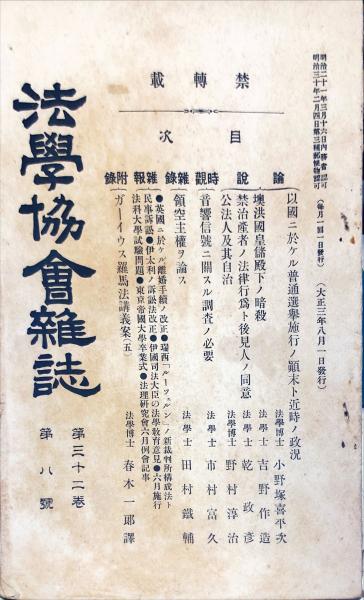 明治二十一年三月十六日内務省認可
明治三十年二月四日第三種郵便物認可
（每月一回一日發行）
（大正三年八月一日發行）
禁轉載
目次
論說
以國ニ於ケル普通選擧施行ノ顚末ト近時ノ政況
法學博士 小野塚喜平次
墺洪國皇儲殿下ノ暗殺
法學士 吉野作造
禁治產者ノ法律行爲ト後見人ノ同意
法學士 乾政彥
公法人及其自治
法學博士 野村淳治
時觀
音響信號ニ關スル調査ノ必要
法學士 市村富久
雜錄
領空主權ヲ論ス
法學士 田村鐵輔
雜報
●英國ニ於ケル離婚手續ノ改正●瑞西「ルーツェルン」ノ新裁判所構成法ト
民事訴訟●伊太利ノ訴訟法改正●伊國司法大臣の法學敎育意見●六月施行
法科大學試驗問題●東京帝國大學卒業式●法理硏究會六月例會記事
附錄
ガーイウス羅馬法講義案（五）
法學博士 春木一郎譯
法學協會雜誌
第三十二卷
第八號